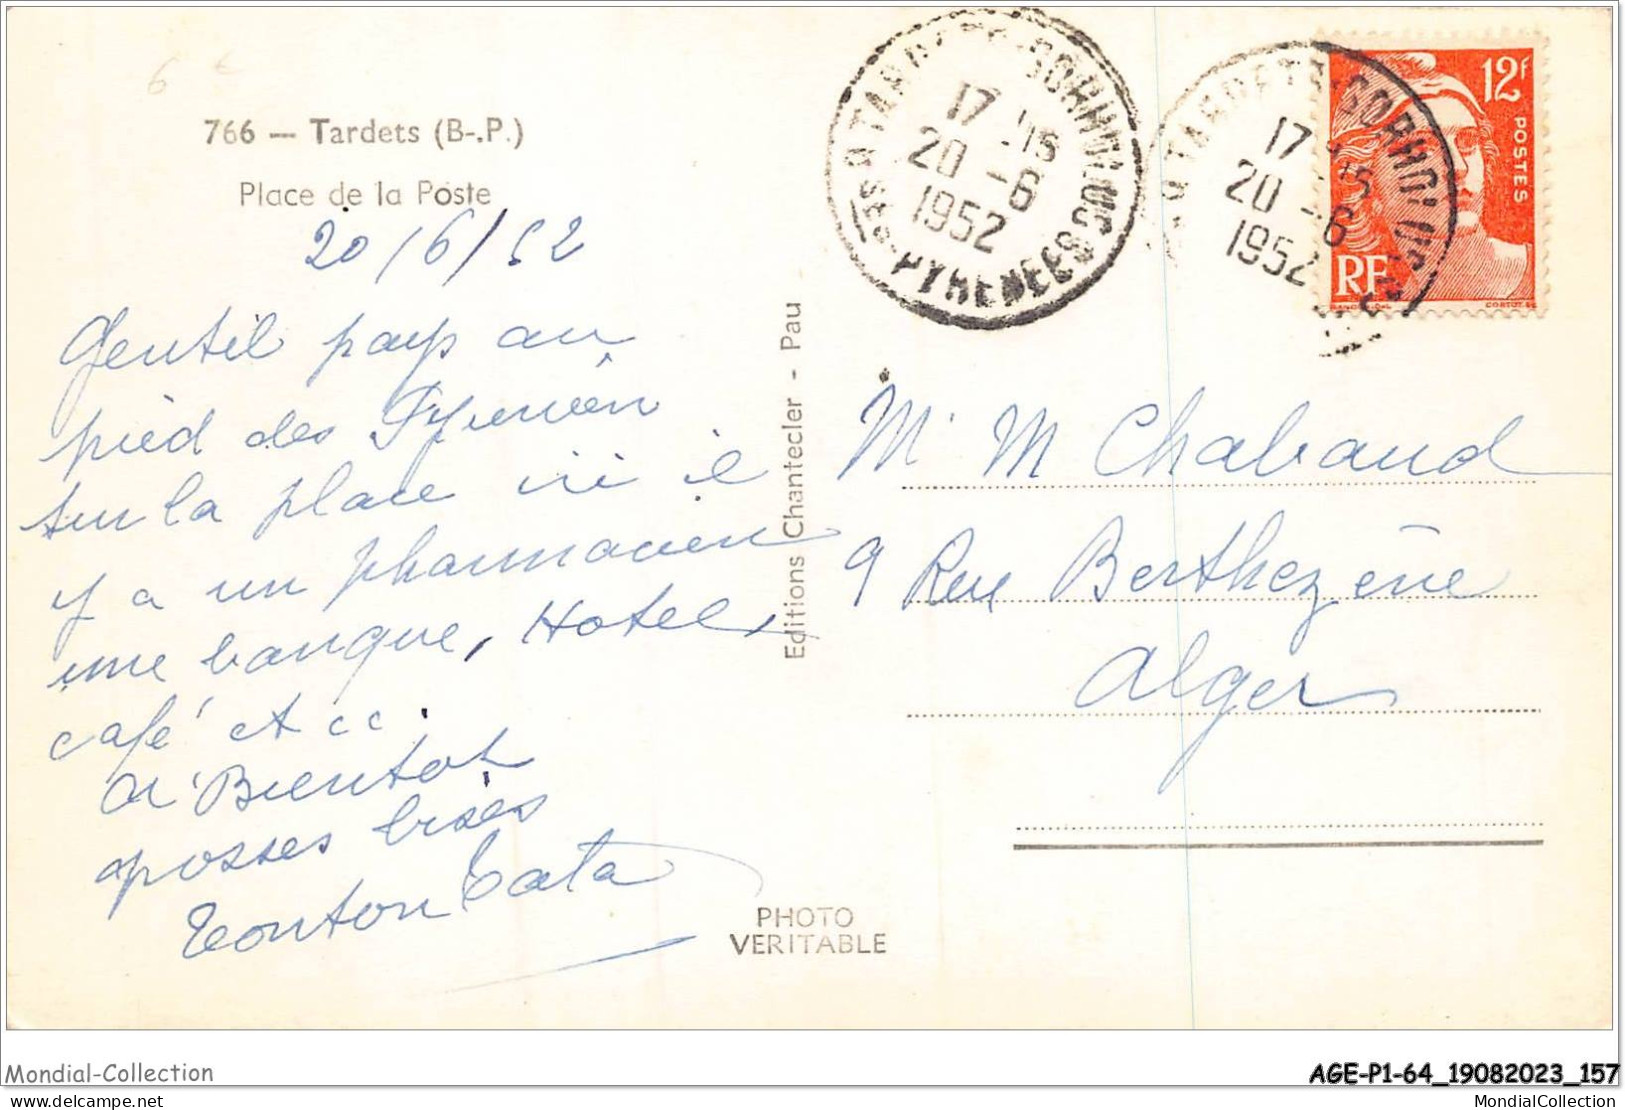 766 — Tardets (B-.P.)
Place de la Poste
20/6/52
Gentil pays au
pied des Pyrenéen
sur la place ici il
y a un pharmacien
une banque, Hotel,
café et cc.
a Bientot
grosses bises
Tonton Tata
Editions Chantecler - Pau
PHOTO
VERITABLE
TARDETS-SORHOLUS
17 - 15
20 - 6
1952
BSES-PYRENEES
TARDETS-SORHOLUS
17 - 15
20 - 6
1952
12F
POSTES
RF
Mr M Chabaud
9 Rue Berthezène
Alger
Mondial-Collection
AGE-P1-64_19082023_157
delcampe.net
MondialCollection